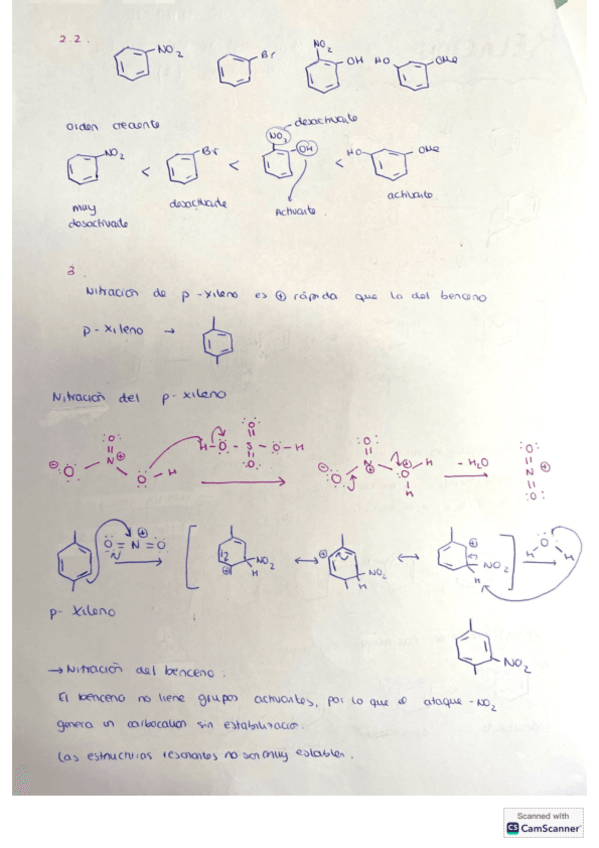 2.2.
NO2 Br NO2 OH HO OMe
Orden creciente
desactivante
NO2 < Br < NO2 OH < HO OMe
muy desactivante
desactivante
Activante.
activante.
3.
Nitración de p-xileno es ⊕ rápida que la del benceno
p-xileno →
Nitración del p-xileno
⊖ O N ⊕ O O H H-O-S-O-H O O → ⊖ O N ⊕ O O ⊕ H H - H2O → O N ⊕ O
O=N=O ⊕ → [ ⊕ NO2 H ↔ ⊕ NO2 H ↔ ⊕ NO2 H ] H O H →
p-xileno
NO2
→ Nitración del benceno:
El benceno no tiene grupos activantes, por lo que el ataque -NO2
genera un carbocation sin estabilización.
Las estructuras resonantes no son muy estables.
Scanned with
CS CamScanner